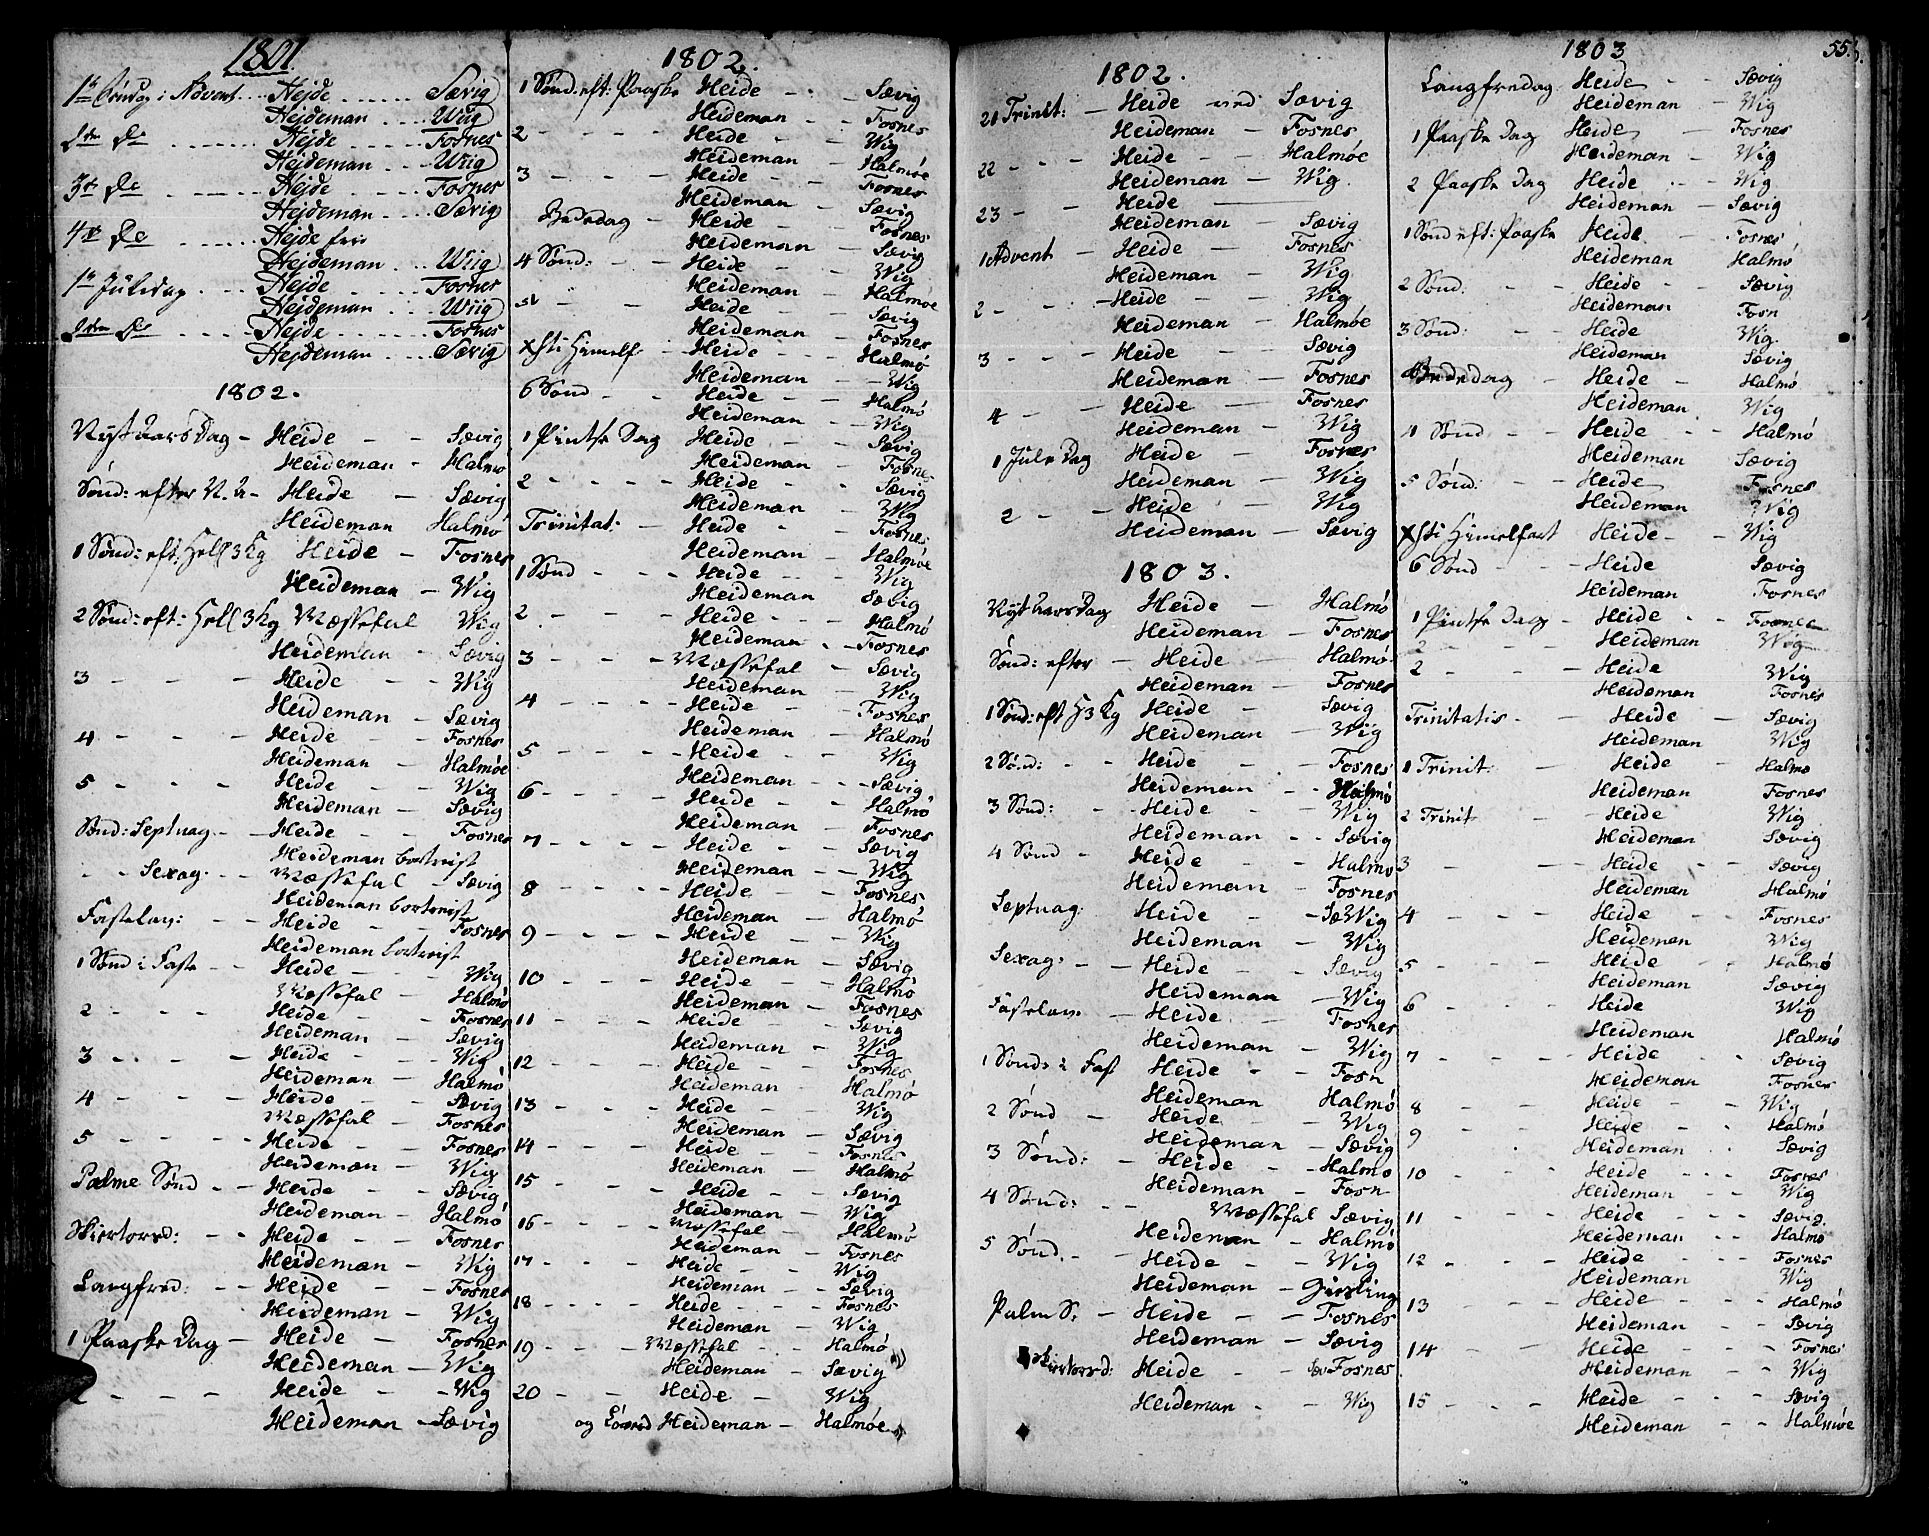 1801.
1te Søndag i Advent .... Hejde ...... Sævig
Hejdeman .... Wiig
2den Do ........ Hejde ...... Fosnes
Hejdeman ... Wiig
3de Do ........ Hejde .... Fosnes
Hejdeman .... Sævig
4de Do ...... Hejde fri
Hejdeman ... Wiig
1te Juledag .... Hejde ..... Fosnes
Hejdeman .... Wiig
2den Do .... Hejde ..... Fosnes
Hejdeman .... Sævig
1802.
Nyt Aars Dag - Heide - - Sævig
Heideman - Halmó
Sønd: efter N. A - Heide - Sævig
Heideman Halmó
1 Sønd: eft: Hell 3 Kg Heide - Fosnes
Heideman - Wig
2 Sønd: eft: Hell 3 Kg Messefal Wig
Heideman - Sævig
3 - - - Heide - - Wig
Heideman - Sævig
4 - - - Heide - - Fosnes
Heideman - Halmóe
5 - - - Heide - - Wig
Heideman - Sævig
Sønd: Septuag. - - Heide - - Fosnes
Heideman bortreist
- - Sexag. - - Messefal - Sævig
Heideman bortreist
Fastelav: - - Heide - - Fosnes
Heideman bortreist
1 Sønd i Faste - - Heide - - Wig
Messefal - Halmó
2 - - - Heide - - Fosnes
Heideman - Sævig
3 - - - Heide - - Wig
Heideman - Halmó
4 - - - Heide - - Sævig
Messefal - Fosnes
5 - - - - Heide - - Fosnes
Heideman - Wig
Palme Sønd - - Heide - - Sævig
Heideman - Halmó
Skiertorsd: - - Heide - - Fosnes
Heideman - Wig
Langfred: - - Heide - - Fosnes
Heideman - Wig
1 Paaske Dag - Heide - Fosnes
Heideman - Wig
2 - - - Heide - - Wig
Heideman - Sævig
1802.
1 Sønd: eft: Paaske Heide - - Sævig
Heideman - - Fosnes
2 - - - Heide - - Wig
Heideman - Halmóe
3 - - - - Heide - - Fosnes
Heideman - Sævig
Bededag - Heide - - Fosnes
Heideman - Sævig
4 Sønd: - - Heide - - Wig
Heideman - Halmóe
5 - - - Heide - - Sævig
Heideman - Fosnes
Xsti Himelf - Heide - - Halmó
Heideman - - Wig
6 Sønd - - Heide - - Halmó
Heideman - Wig
1 Pintse Dag Heide - - Sævig
Heideman - Fosnes
2 - - - - Heide - - Sævig
Heideman - Wig
Trinitat: - Heide - - Fosnes
Heideman - Halmóe
1 Sønd - - - Heide - - - Wig
Heideman Sævig
2 - - - Heide - - Halmó
Heideman - - Fosnes
3 - - - Messefal - Sævig
Heideman - Wig
4 - - - - Heide - - Fosnes
Heideman - Halmó
5 - - - - Heide - - Wig
Heideman - - Sævig
6 - - - - Heide - - Halmó
Heideman - Fosnes
7 - - - - Heide - - Sævig
Heideman - - Wig
8 - - - - Heide - - Fosnes
Heideman - Halmó
9 - - - - Heide - - Wig
Heideman - Sævig
10 - - - - Heide - - Halmó
Heideman - Fosnes
11 - - - Heide - - Sævig
Heideman - Wig
12 - - - Heide - - Fosnes
Heideman - Halmó
13 - - - Heide - - Wig
Heideman - Sævig
14 - - - Heide - - Fosnes
Heideman - Halmó
15 - - - Heide - - Sævig
Heideman - Wig
16 - - - - Messefal - Halmó
Heideman - Fosnes
17 - - - Heide - - Wig
Heideman - Sævig
18 - - - - Heide - - Fosnes
Heideman - Wig
19 - - - Messefal - Halmó
Heideman - Sævig
20 - - Heide - Wig
og Heideman - Halmóe
1802.
21 Trinit: - Heide ved Sævig
Heideman - Fosnes
22 - - - Heide - Halmóe
Heideman - Wig.
23 - - Heide
Heideman Sævig
1 Advent - Heide - Fosnes
Heideman - Wig
2 - - - Heide - - Wig
Heideman - Halmóe
3 - - - Heide - Sævig
Heideman - Fosnes
4 - - Heide - Fosnes
Heideman - Wig
1 Jule Dag Heide - Fosnes
Heideman - Wig
2 - - Heide - Wig
Heideman - Sævig
1803.
Nyt Aars Dag Heide - Halmó
Heideman - Fosnes
Sønd: efter - Heide - Halmó
Heideman - Fosnes
1 Sønd: eft H 3 Kg Heide - Sævig
Heideman - Wig
2 Sønd: - - Heide - - Fosnes
Heideman - - Halmó
3 Sønd: - - Heide - - Wig
Heideman - - Sævig
4 Sønd - Heide - - Halmó
Heideman - Fosnes
Septuag: Heide - - Sæ Wig
Heideman - Wig
Sexag: - - Heide - - Sævig
Heideman - Wig
Fastelav. - Heide - - Fosnes
Heideman - Wig
1 Sønd: i Fast Heide - - Fosn
Heideman Halmó
2 Sønd - Heide - - Wig
Heideman - Sævig
3 Sønd: - Heide - - Halmo
Heideman - Fosn
4 Sønd: - - Messefal Sævig
Heideman - Halmó
5 Sønd. - - Heide - - Wig
Heideman - Giesling
Palm S. - Heide - - Fosnes
Heideman - Sævig
Skiertorsd: Heide - Fosnes
Heideman - - Wig
1803
55.
Langfredag Heide - - Sævig
Heideman - Wig
1 Paaske Dag Heide - Fosnes
Heideman - Wig
2 Paaske Dag Heide - - Wig
Heideman - Sævig
1 Sønd eft: Paaske Heide - Fosnes
Heideman Halmó
2 Sønd: - - Heide - Sævig
Heideman Fosn
3 Sønd: - - Heide Wig.
Heideman Sævig
Bededag - Heide - Halmó
Heideman Wig
4 Sønd - - Heide - Halmó
Heideman Sævig
5 Sønd: - - Heide Fosnes
Heideman Wig
Xsti Himelfart Heide - - Wig
6 Sønd - - Heide Sævig
Heideman Fosnes
1 Pintse Dag - Heide - - Fosnes
2 - - Heideman Wig
2 - - Heide Wig
Heideman Fosnes
Trinitatis - - Heide - Sævig
Heideman Wig
1 Trinit: - Heide - Halmo
Heideman Fosnes
2 Trinit - - Heide Wig
Heideman Sævig
3 - - Heide - Sævig
Heideman Halmó
4 - - - Heide - Fosnes
Heideman Wig
5 - - - Heide - Halmó
Heideman Sævig
6 - - - Heide Wig
Heideman Halmó
7 - - - Heide - Sævig
Heideman Fosnes
8 - - - Heide - - Wig
9 - Heide - - Halmó
Heideman Sævig
10 - - - Heide - - Fosnes
Heideman - Wig
11 - - - Heide - Sævig.
Heideman - - Halmó
12 - - - Heide - Fosnes
Heideman Wig
13 - - Heide - - Halmó
Heideman - Sævig
14 - - Heide - Fosnes
Heideman - - Wig
15 - - - Heide - - Sævig
Heideman - - Halmóe